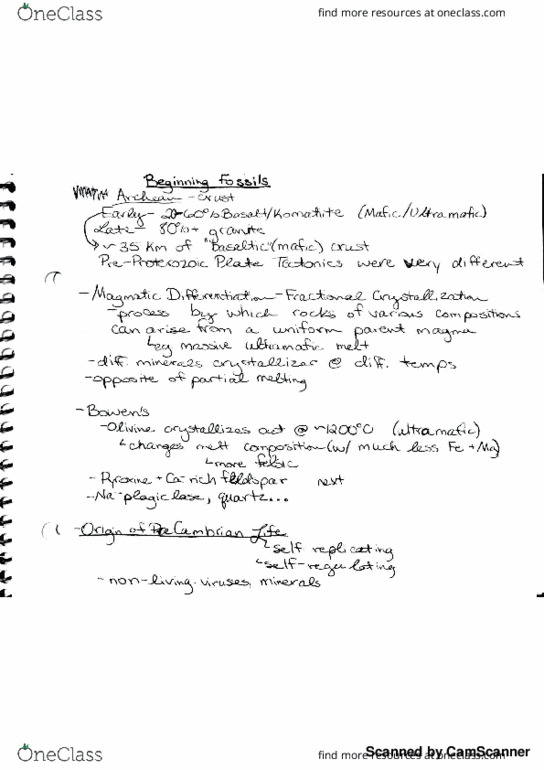 OneClass
find more resources at oneclass.com
Beginning Fossils
Archean - crust
Early - 20-60% Basalt/Komatiite (Mafic/Ultramafic)
Late - 80%+ granite
~ 35 Km of "Basaltic" (mafic) crust
Pre-Proterozoic Plate Tectonics were very different
- Magmatic Differentiation - Fractional Crystallization
- process by which rocks of various compositions
can arise from a uniform parent magma
eg massive ultramafic melt
- diff. minerals crystallize @ diff. temps
- opposite of partial melting
- Bowen's
- Olivine crystallizes out @ ~1200°C (ultramafic)
changes melt composition (w/ much less Fe + Mg)
more felsic
- Pyroxine + Ca-rich feldspar next
- Na-plagioclase, quartz...
- Origin of PreCambrian Life
self replicating
self-regulating
- non-living: viruses, minerals
OneClass
find more resources at oneclass.com
Scanned by CamScanner